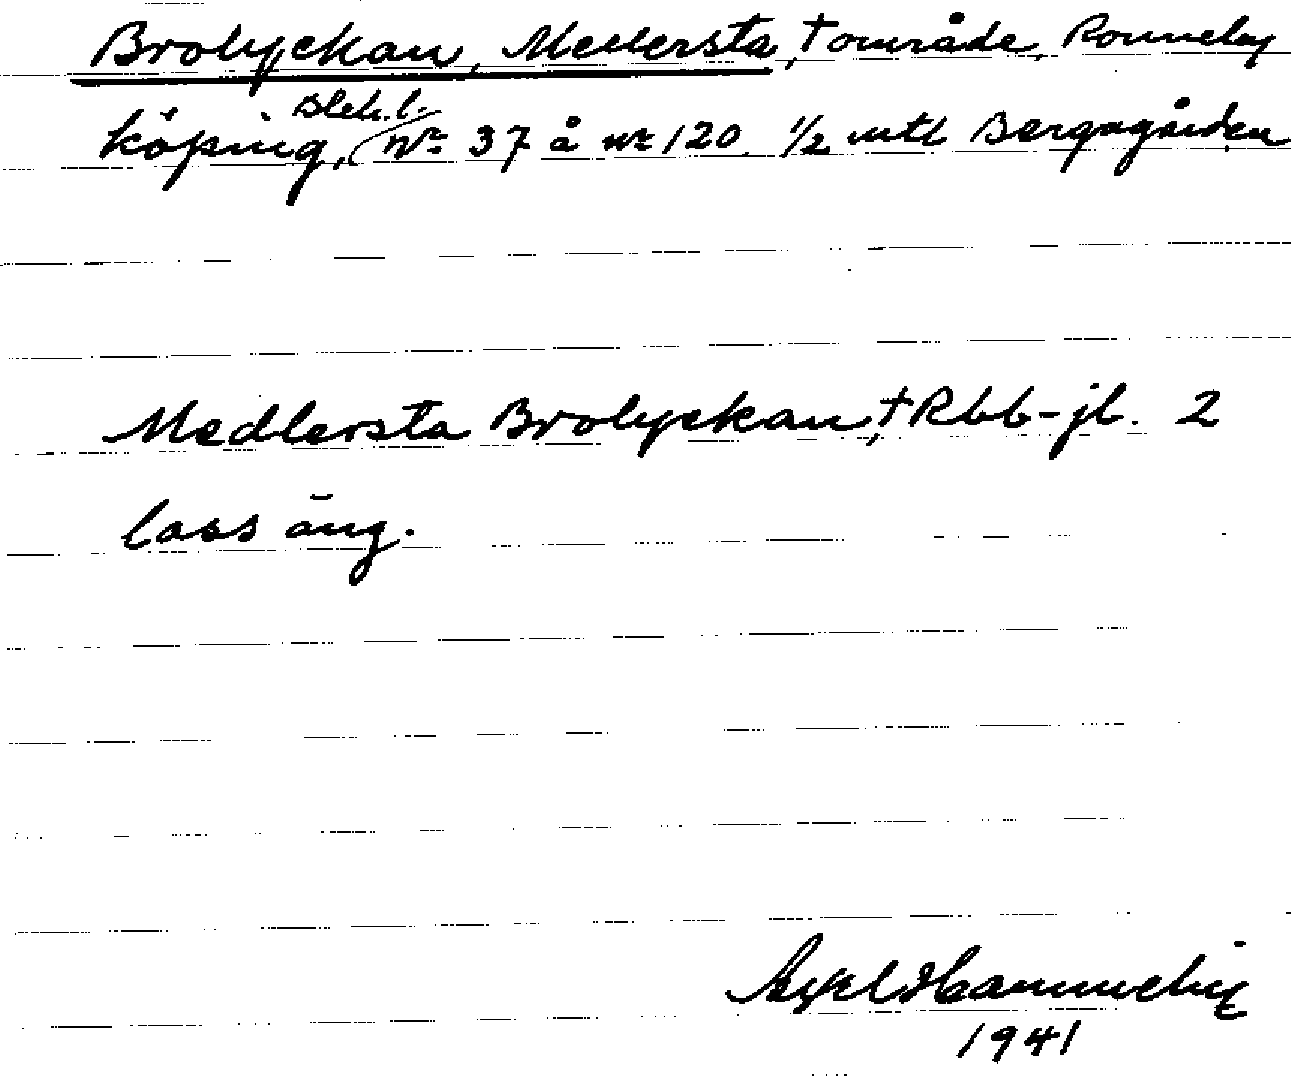 Brolyckan, Mellersta, † område, Ronneby
köping, Blek. l. (Nr 37 å nr 120 1/2 mtl Bergagården
Medlersta Brolyckan, † Rbb-jb. 2
lass äng.
Axel
1941